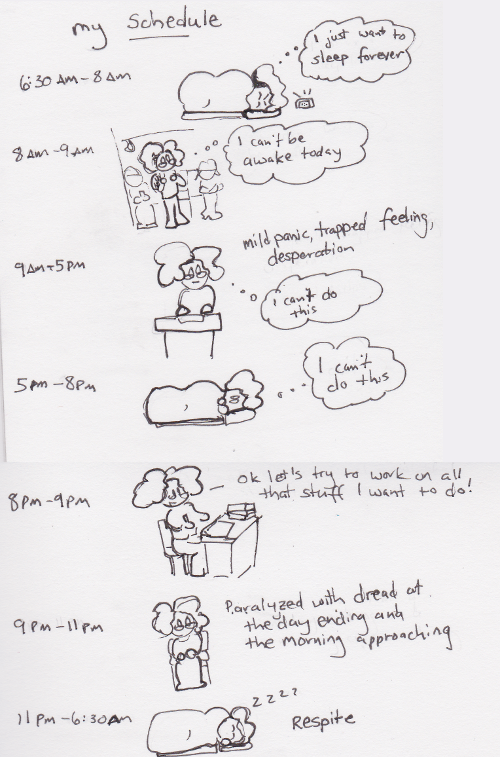 my Schedule
6:30 AM - 8 AM
I just want to
sleep forever
8 AM - 9 AM
I can't be
awake today
9 AM - 5 PM
mild panic, trapped feeling,
desperation
I can't do
this
5 PM - 8 PM
I can't
do this
8 PM - 9 PM
ok let's try to work on all
that stuff I want to do!
9 PM - 11 PM
Paralyzed with dread at
the day ending and
the morning approaching
11 PM - 6:30 AM
zzzz
Respite